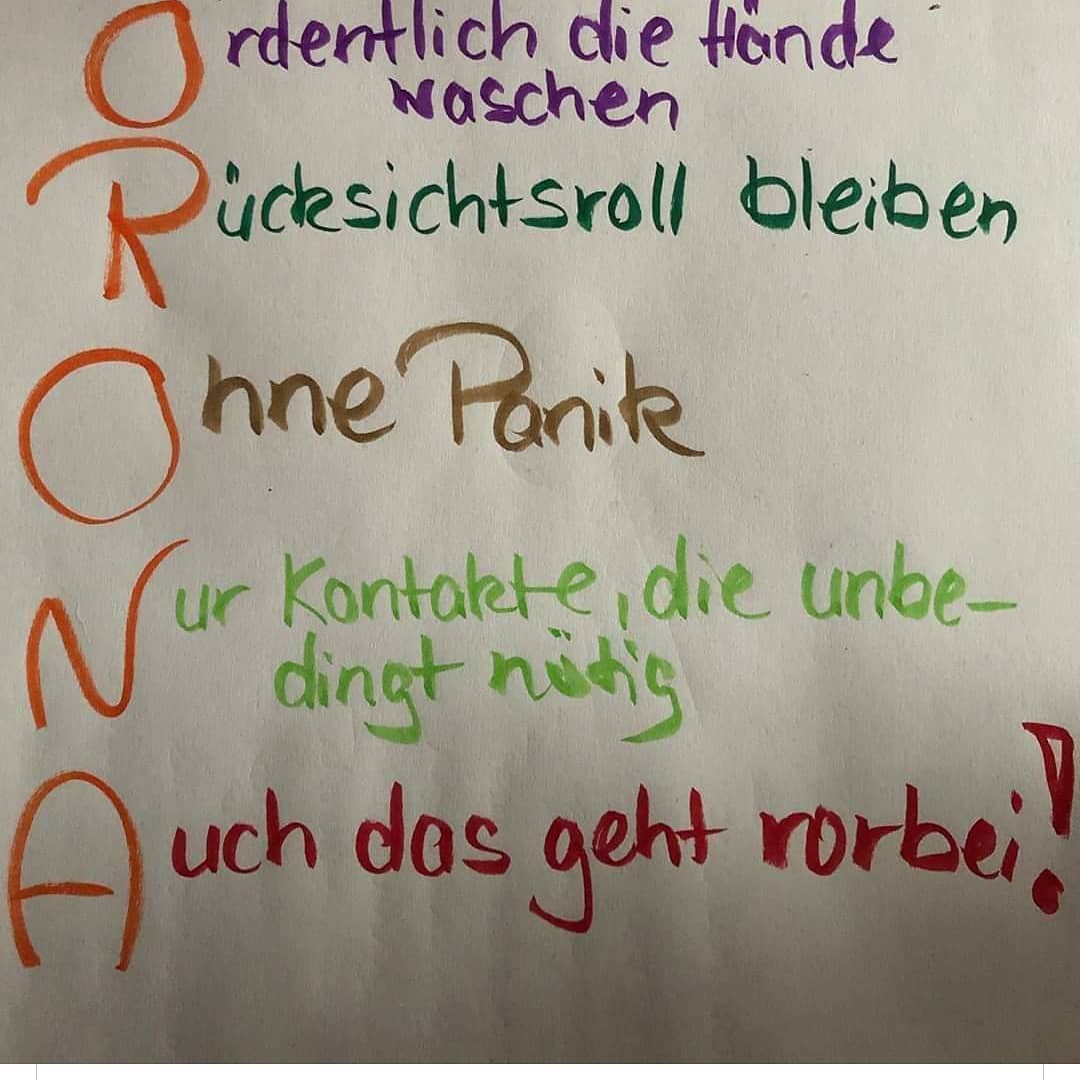 Ordentlich die Hände
waschen
Rücksichtsvoll bleiben
Ohne Panik
Nur Kontakte, die unbe-
dingt nötig
Auch das geht vorbei!